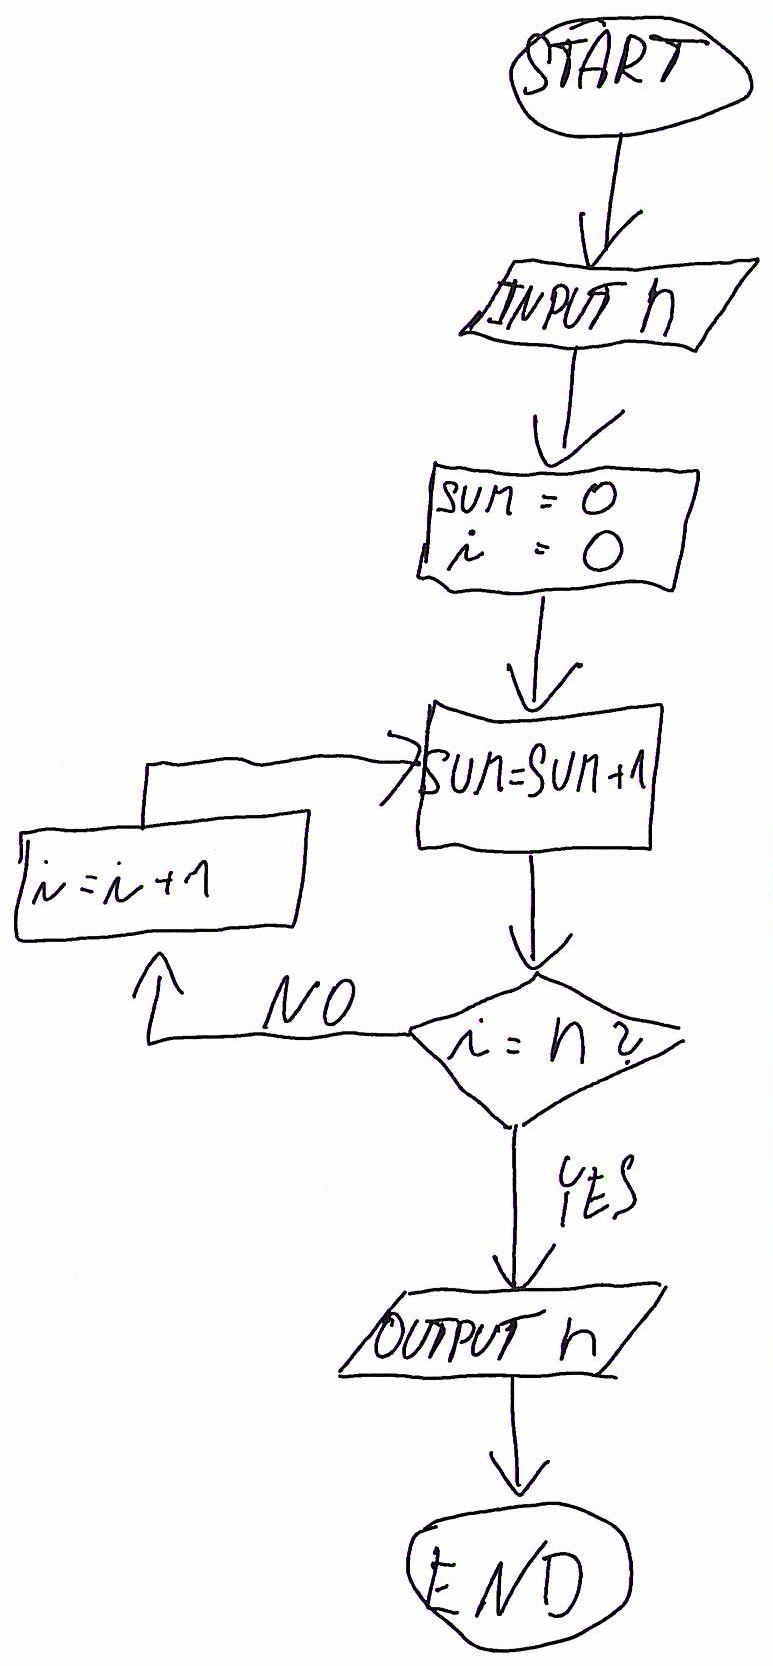 START
INPUT n
sum = 0
i = 0
sum=sum+1
i=i+1
NO
i=n?
YES
OUTPUT n
END